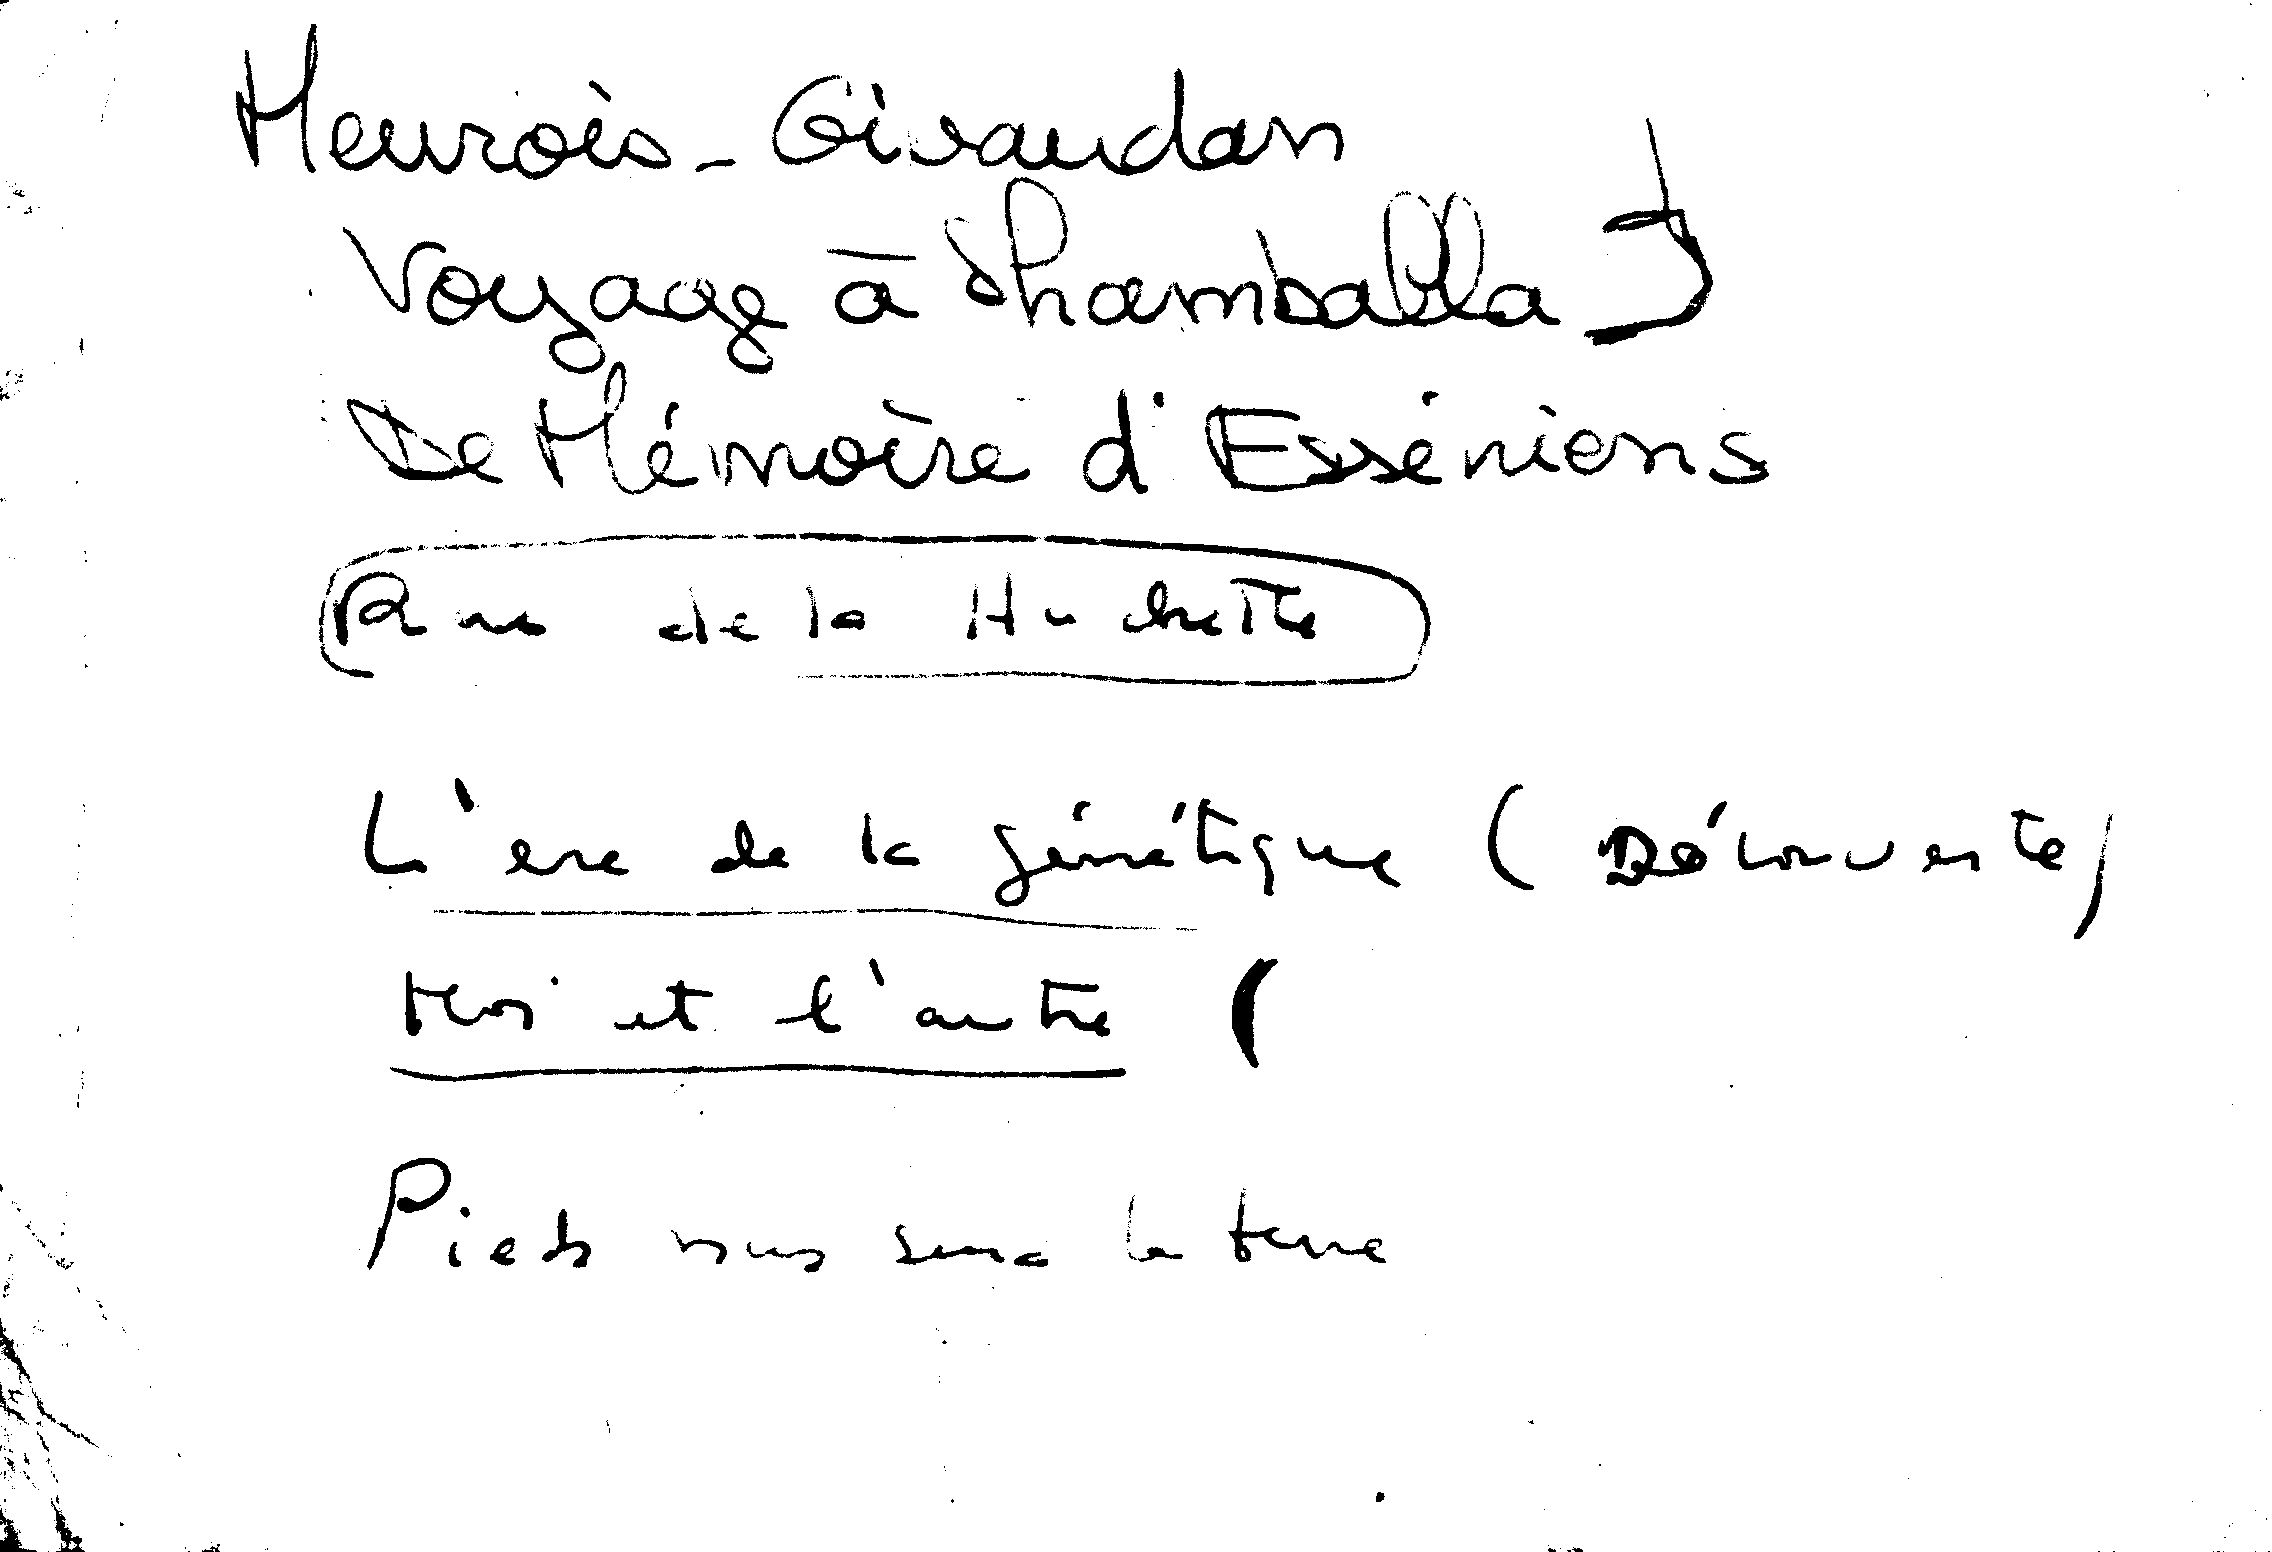 Meurois-Givaudan
Voyage à Shamballa
De Mémoire d'Esséniens
Rue de la Huchette
L'ere de la génétique (Découverte)
Moi et l'autre (
Pieds nus sur la terre